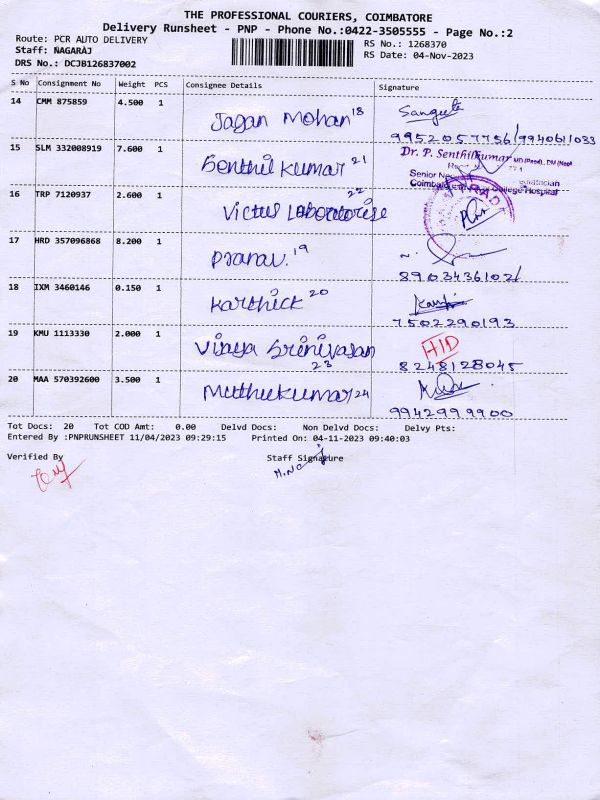 THE PROFESSIONAL COURIERS, COIMBATORE
Delivery Runsheet - PNP - Phone No.:0422-3505555 - Page No.:2
Route: PCR AUTO DELIVERY
RS No.: 1268370
Staff: NAGARAJ
RS Date: 04-Nov-2023
DRS No.: DCJB126837002
S No Consignment No Weight PCS Consignee Details Signature
14 CMM 875859 4.500 1 Jagan Mohan 18
9952057756/9940611033
15 SLM 332008919 7.600 1 Senthil Kumar 21 Dr. P. Senthilkumar
Senior
Coimbatore College Hospital
16 TRP 7120937 2.600 1 Victus Laboratorise 22
17 HRD 357096868 8.200 1 Pranav. 19
8903436102/
18 IXM 3460146 0.150 1 Karthick 20
7502290193
19 KMU 1113330 2.000 1 Vijaya Srinivasan 23 HID
8248128045
20 MAA 570392600 3.500 1 Muthukumar 24
9942999900
Tot Docs: 20 Tot COD Amt: 0.00 Delvd Docs: Non Delvd Docs: Delvy Pts:
Entered By :PNPRUNSHEET 11/04/2023 09:29:15 Printed On: 04-11-2023 09:40:03
Verified By Staff Signature